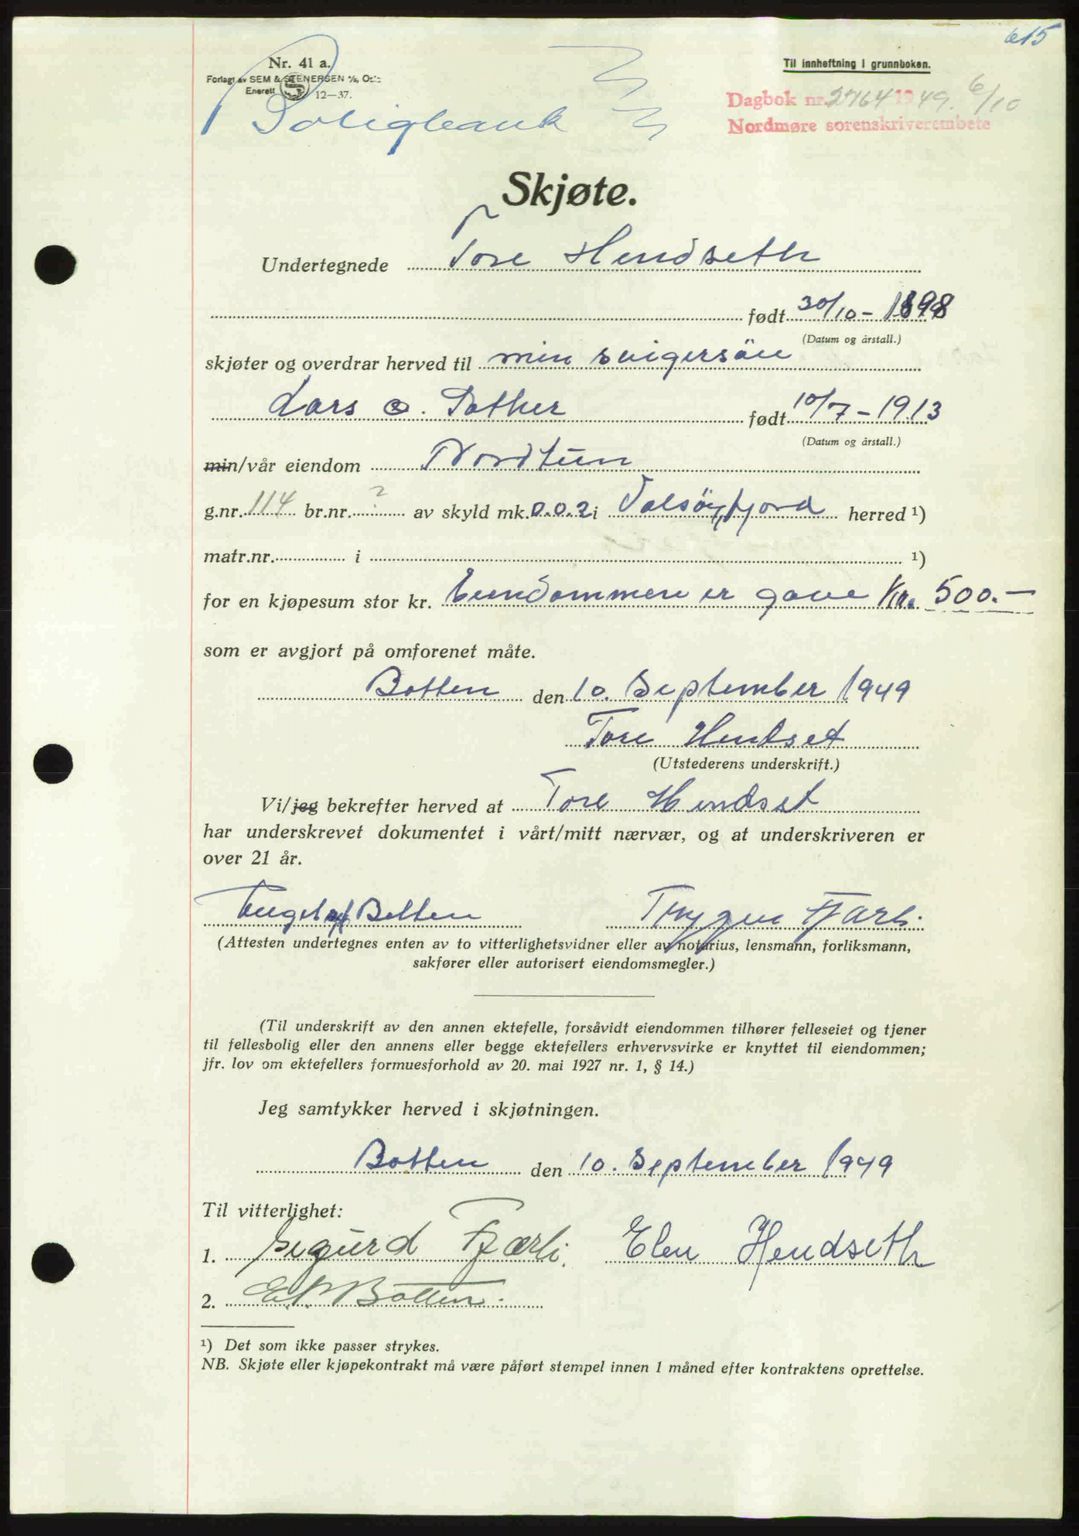 615
Nr. 41 a.
Forlagt av SEM & STENERSEN A/S, Oslo
Enerett 12—37.
Til innheftning i grunnboken.
Dagbok nr. 2764 1949. 6/10
Nordmøre sorenskriverembete
Skjøte.
Undertegnede Tore Hendseth
født 30/10 - 1898
(Datum og årstall.)
skjøter og overdrar herved til min svigersön
Lars O. Sather født 10/7 - 1913
(Datum og årstall.)
min/vår eiendom Nordtun
g.nr. 114 br.nr. ? av skyld mk. 0.0.2 i Valsöyfjord herred ¹)
matr.nr. i ¹)
for en kjøpesum stor kr. Eiendommen er gave Kr. 500.—
som er avgjort på omforenet måte.
Botten den 10. September 1949
Tore Hendset
(Utstederens underskrift.)
Vi/jeg bekrefter herved at Tore Hendset
har underskrevet dokumentet i vårt/mitt nærvær, og at underskriveren er
over 21 år.
Botten Trygve Fjærli
(Attesten undertegnes enten av to vitterlighetsvidner eller av notarius, lensmann, forliksmann,
sakfører eller autorisert eiendomsmegler.)
(Til underskrift av den annen ektefelle, forsåvidt eiendommen tilhører felleseiet og tjener
til fellesbolig eller den annens eller begge ektefellers erhvervsvirke er knyttet til eiendommen;
jfr. lov om ektefellers formuesforhold av 20. mai 1927 nr. 1, § 14.)
Jeg samtykker herved i skjøtningen.
Botten den 10. September 1949
Til vitterlighet:
1. Sigurd Fjærli. Elen Hendseth
2. Botten.
¹) Det som ikke passer strykes.
NB. Skjøte eller kjøpekontrakt må være påført stempel innen 1 måned efter kontraktens oprettelse.